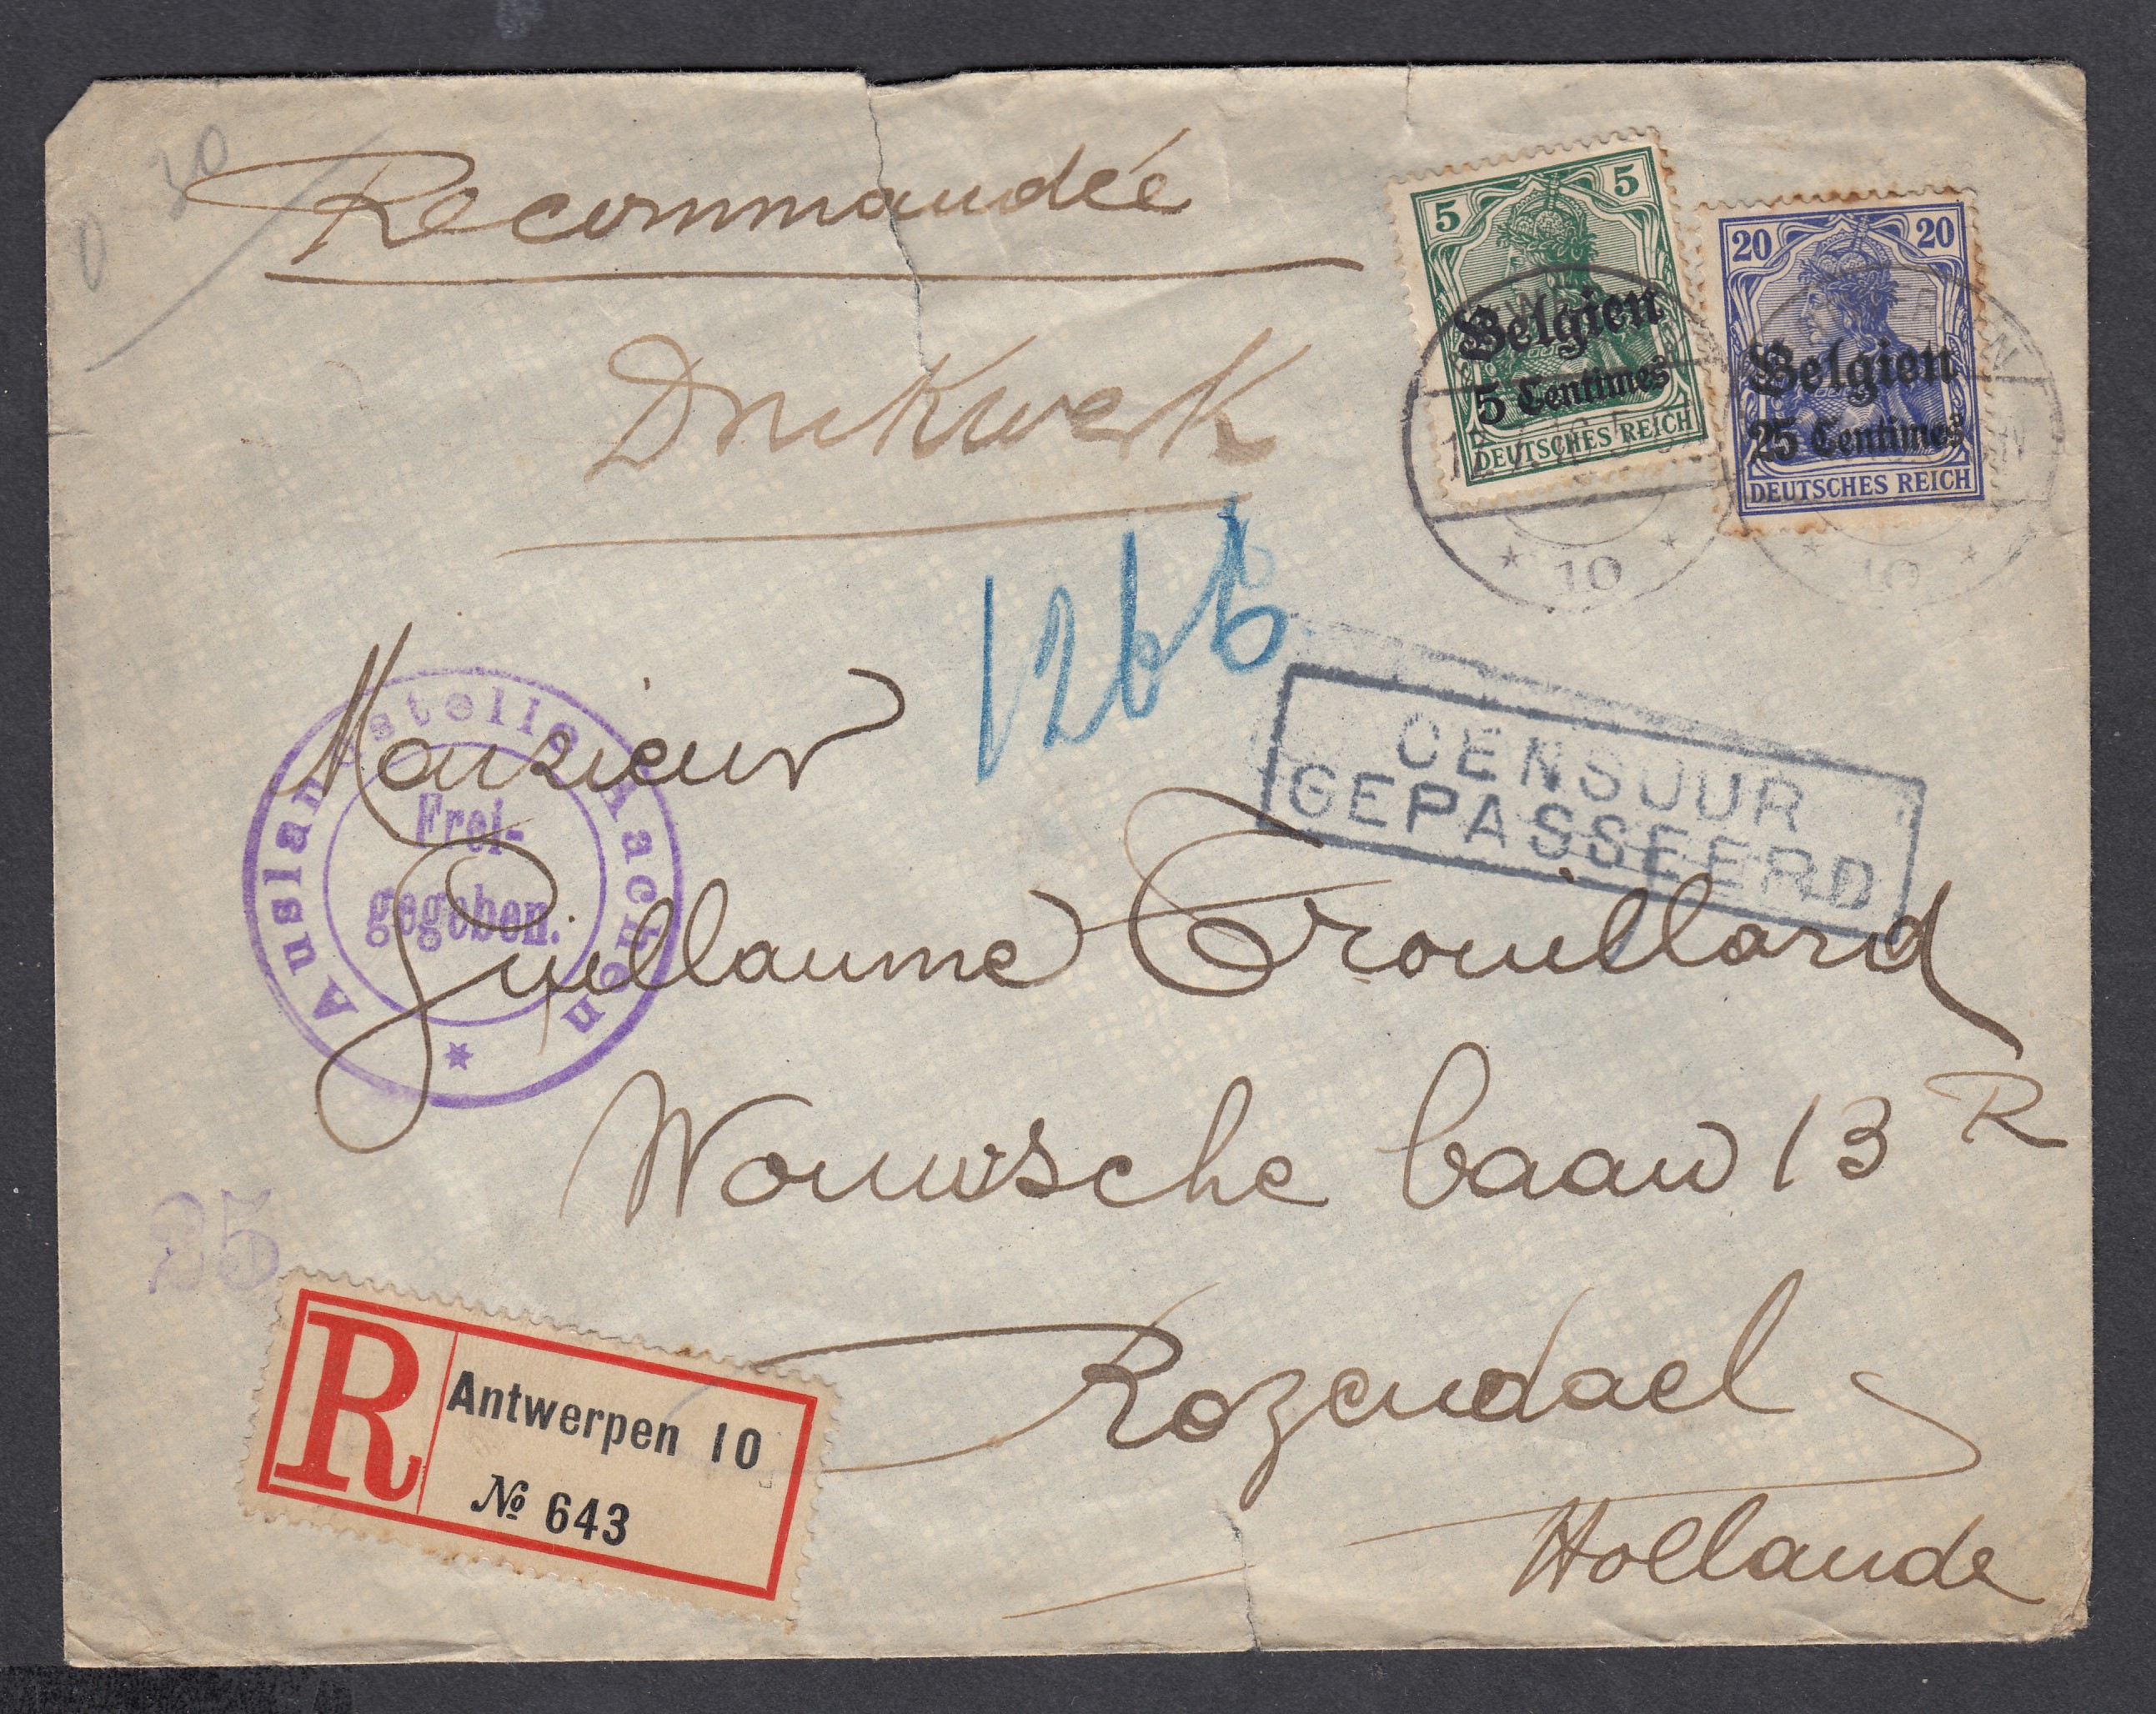 30
0
Recommandée
Drukwerk
5 5
Belgien
5 Centimes
DEUTSCHES REICH
20 20
Belgien
25 Centimes
DEUTSCHES REICH
* 10 *
* 10 *
1266
CENSUUR
GEPASSEERD
Auslandsstelle Aachen
Frei-
gegeben.
Monsieur
Guillaume Trouillard
Wouwsche baan 13 R
Rozendael
Hollande
25
R Antwerpen 10
№ 643